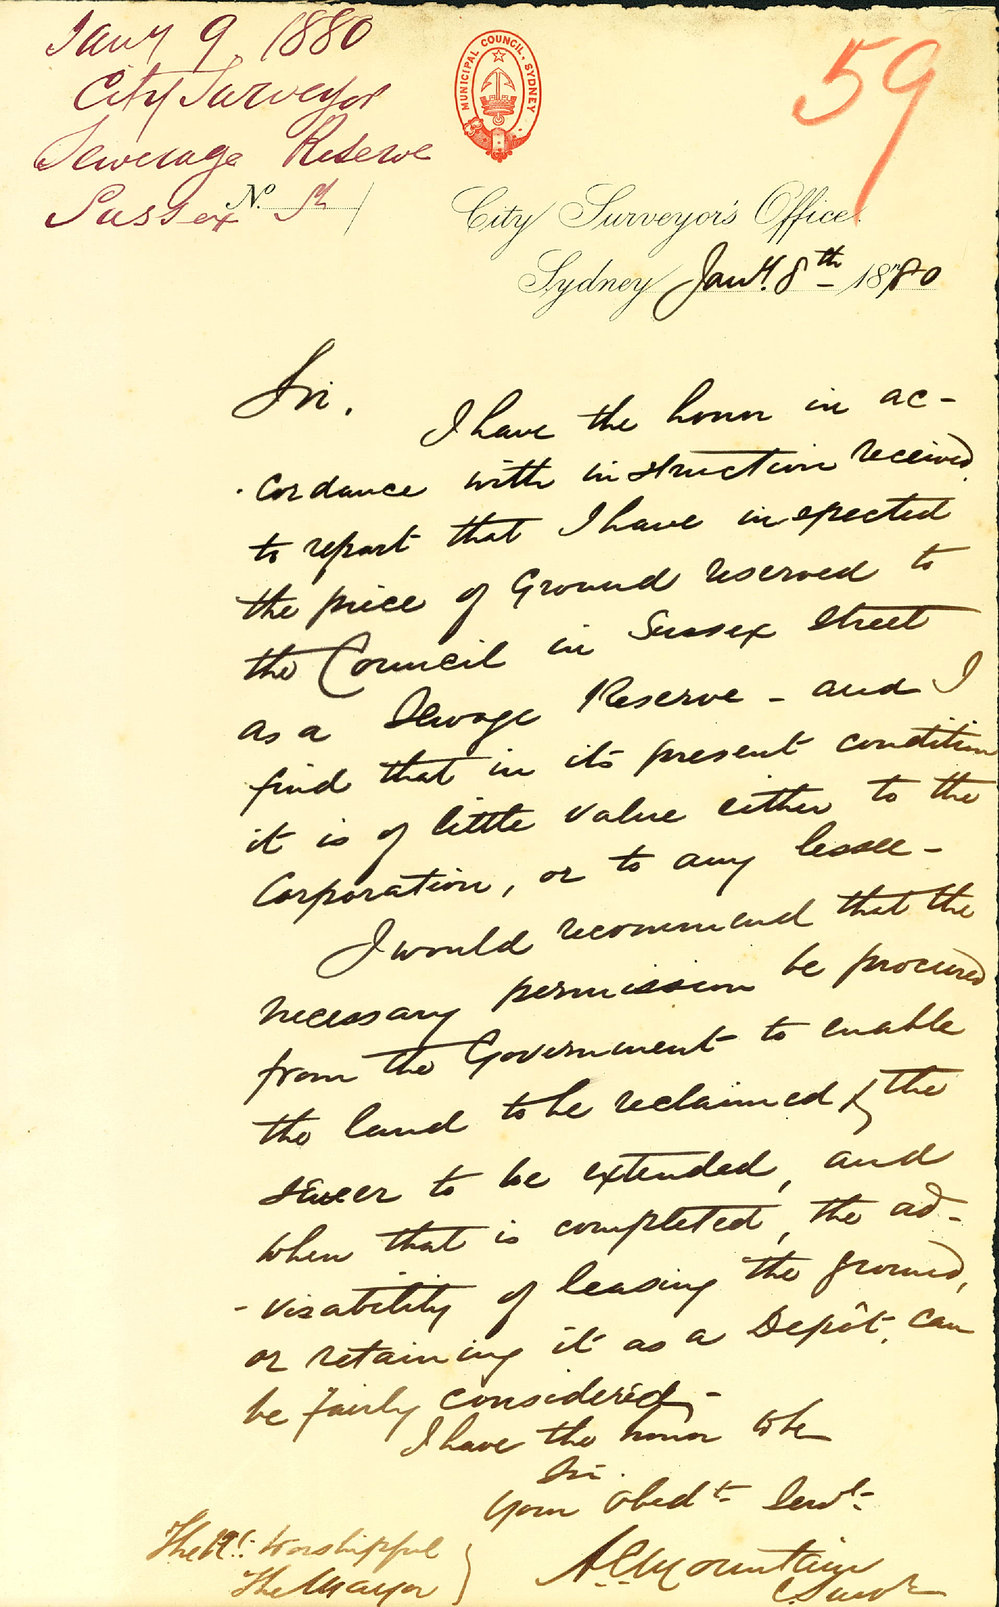 Jany 9 1880
City Surveyor
Sewerage Reserve
Sussex St
No.
MUNICIPAL COUNCIL, SYDNEY
59
City Surveyor's Office.
Sydney Jany. 8th 1880
Sir.
I have the honor in ac-
-cordance with instruction received
to report that I have inspected
the piece of Ground reserved to
the Council in Sussex Street
as a Sewage Reserve - and I
find that in its present condition
it is of little value either to the
Corporation, or to any lessee -
I would recommend that the
necessary permission be procured
from the Government to enable
the land to be reclaimed & the
sewer to be extended, and
when that is completed, the ad-
-visability of leasing the ground,
or retaining it as a Depôt, can
be fairly considered, -
I have the honor to be
Sir.
Your Obedt. Servt.
The Rt. Worshipful
The Mayor
A.C. Mountain
C. Survr.